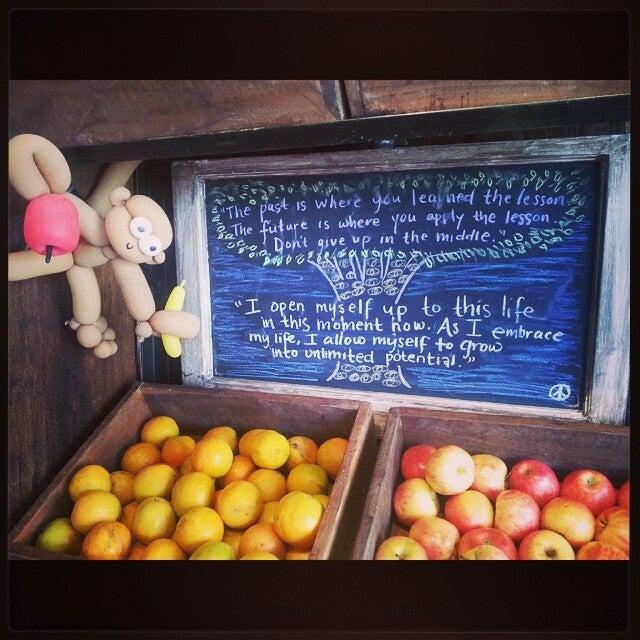 "The past is where you learned the lesson.
The future is where you apply the lesson.
Don't give up in the middle."
"I open myself up to this life
in this moment now. As I embrace
my life, I allow myself to grow
into unlimited potential."